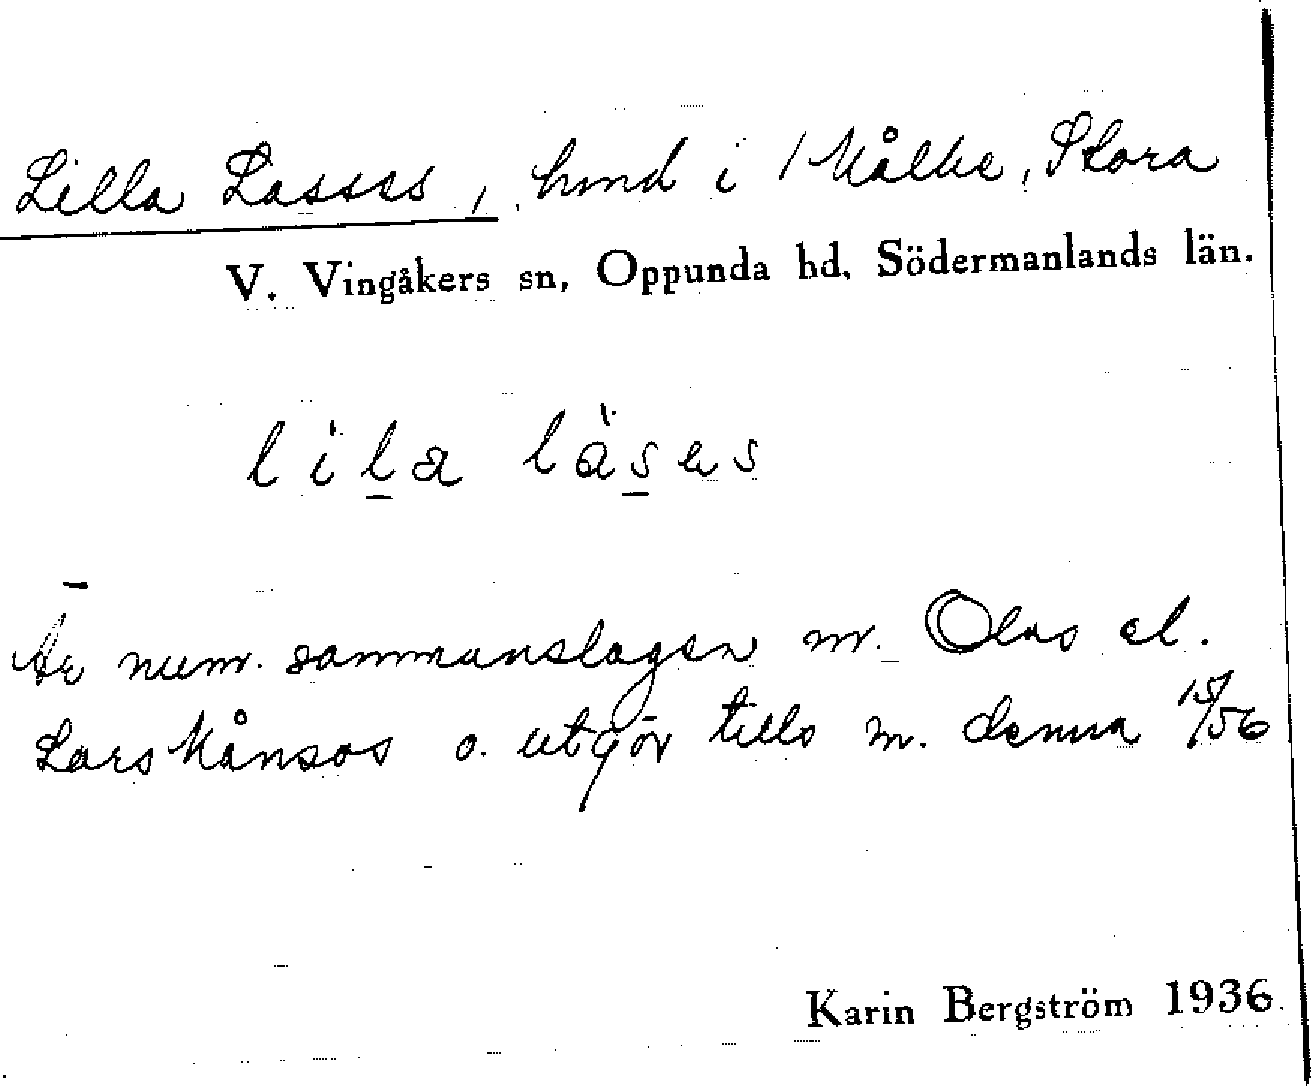 Lilla Lasses, hmd i Målke, Stora
V. Vingåkers sn, Oppunda hd, Södermanlands län.
lila läses
Är num. sammanslagen m. Olas el.
Lars Månsos o. utgör tills m. denna 15/56
Karin Bergström 1936